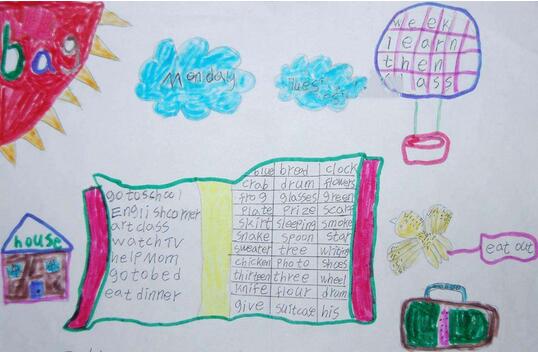 bag
Monday
week
learn
then
class
go to school
English corner
art class
watch TV
help Mom
go to bed
eat dinner
blue bread clock
crab drum flowers
frog glasses green
plate prize scarf
skirt sleeping smoke
snake spoon star
sweater tree writing
chicken photo shoes
thirteen three wheel
knife flour drum
give suitcase his
house
eat out